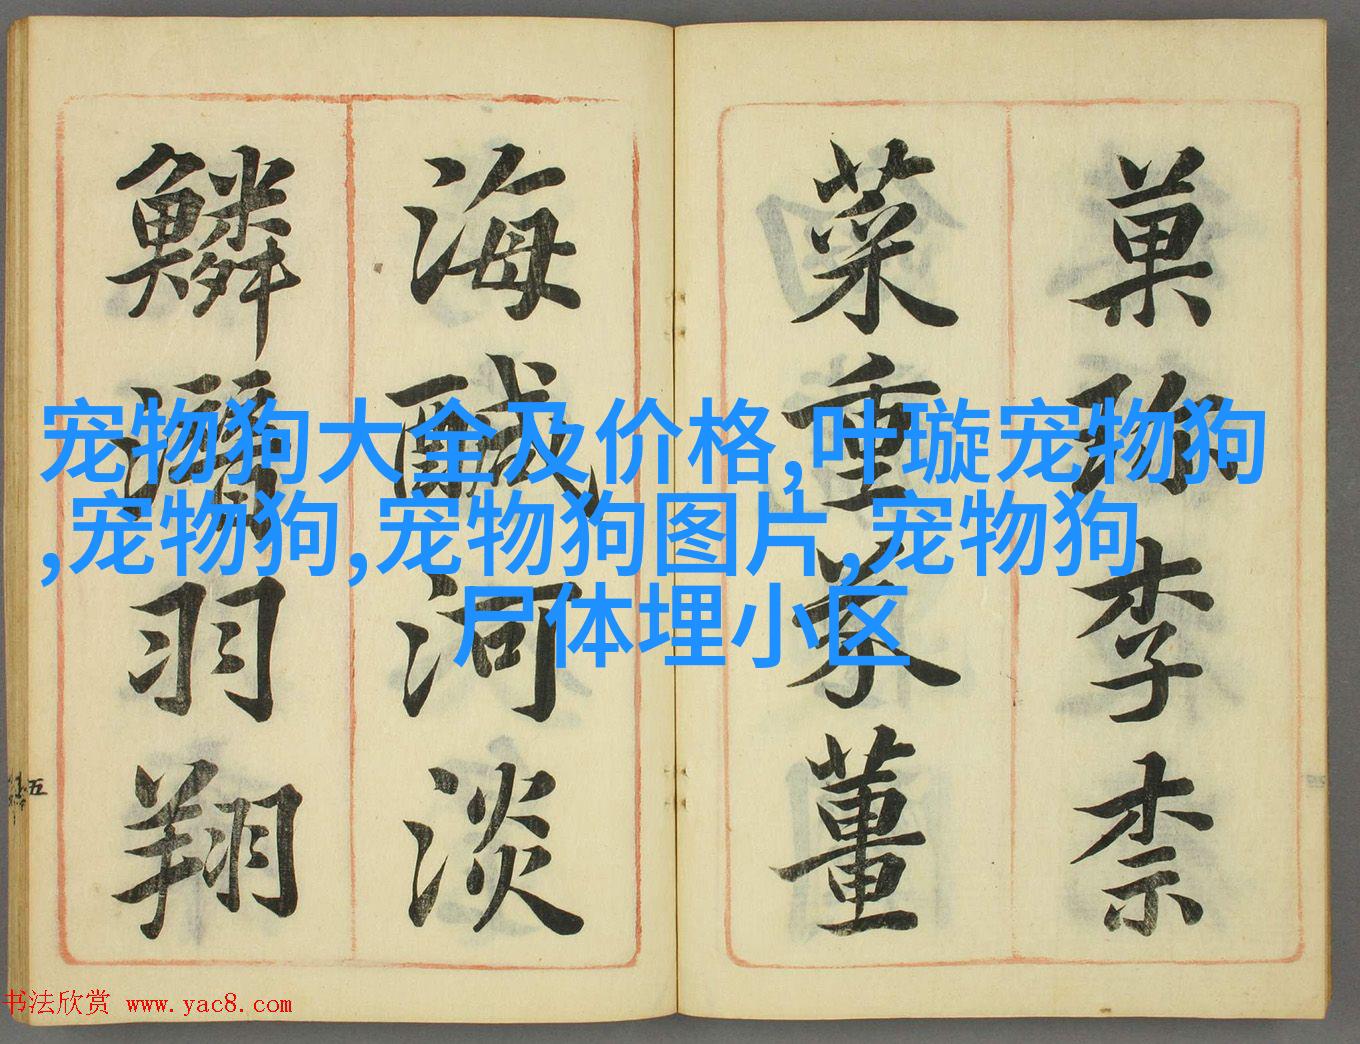 菓珎李柰
菜重芥薑
海醎河淡
鱗潛羽翔
五
宠物狗大全及价格,叶璇宠物狗
,宠物狗,宠物狗图片,宠物狗
尸体埋小区
书法欣赏 www.yac8.com